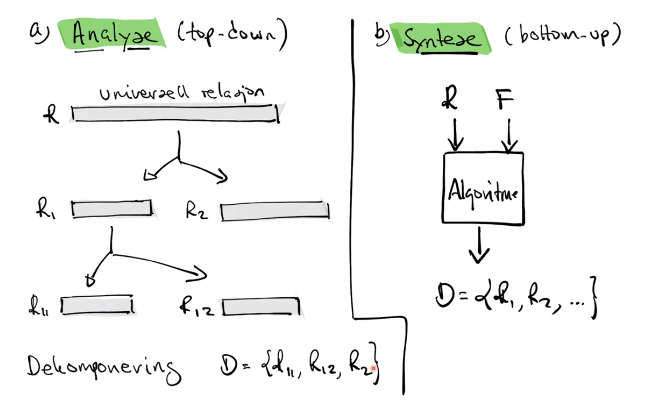 a) Analyse (top-down)
universell relasjon
R
R₁ R₂
R₁₁ R₁₂
Dekomponering D = {R₁₁, R₁₂, R₂}
b) Syntese (bottom-up)
R F
Algoritme
D = {R₁, R₂, ...}